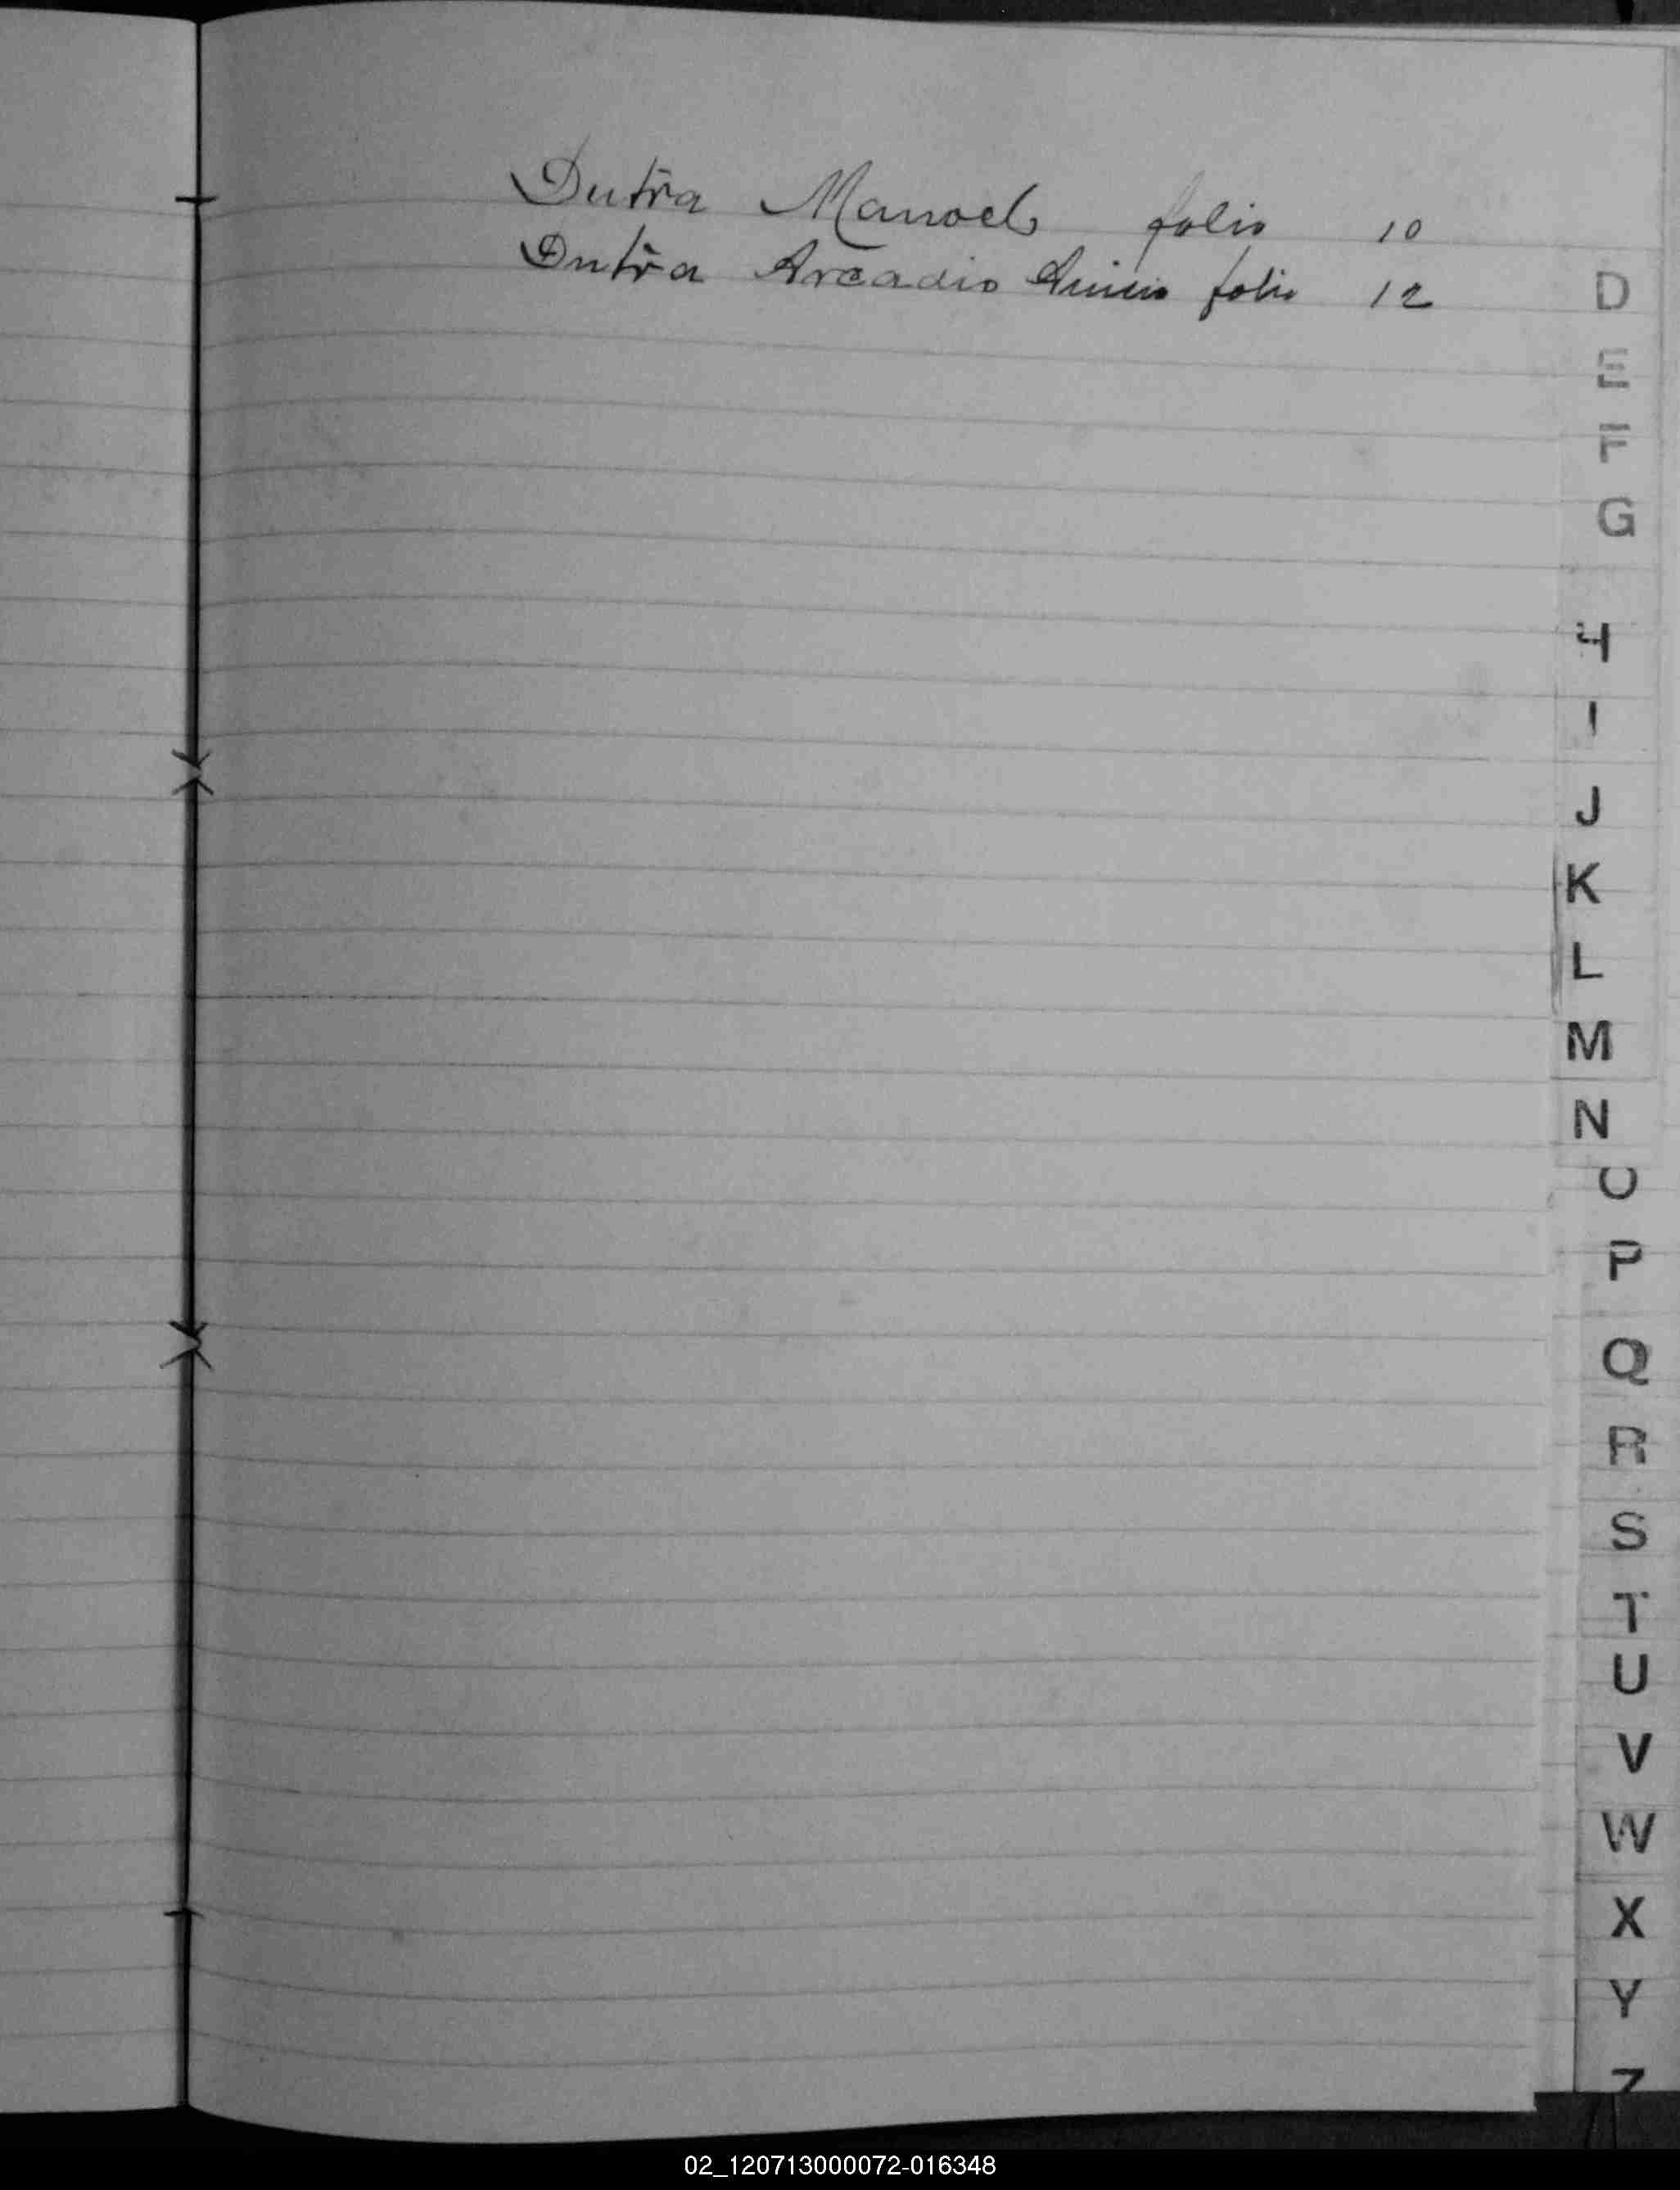 Dutra Manoel folio 10
Dutra Arcadio folio 12
D
E
F
G
H
I
J
K
L
M
N
O
P
Q
R
S
T
U
V
W
X
Y
Z
02_120713000072-016348